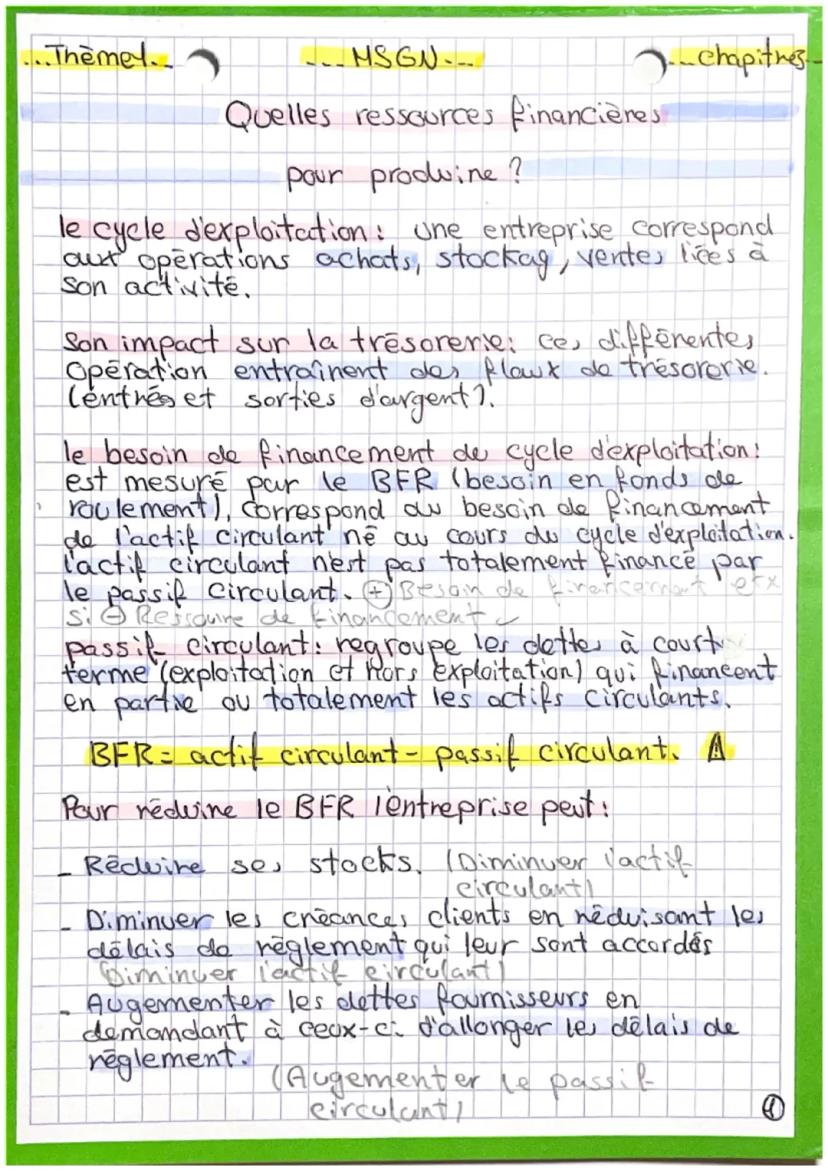 ...Thème1... ---MSGN--- ...chapitre3...
Quelles ressources financières
pour produire ?
le cycle d'exploitation : une entreprise correspond
aux opérations achats, stockag, ventes liées à
son activité.
Son impact sur la trésorerie: ces différentes
Opération entraînent des flaux de trésorerie.
(éntrées et sorties d'argent).
le besoin de financement de cycle d'exploitation:
est mesuré par le BFR (besoin en fonds de
roulement), correspond au besoin de financement
de l'actif circulant né au cours du cycle d'exploitation.
l'actif circulant n'est pas totalement financé par
le passif circulant. (+) Besoin de financement
si (-) Ressource de financement
passif circulant: regroupe les dettes à court
terme (exploitation et hors exploitation) qui financent
en partie ou totalement les actifs circulants.
BFR = actif circulant - passif circulant. ⚠
Pour réduire le BFR l'entreprise peut:
- Réduire ses stocks. (Diminuer l'actif
circulant)
- Diminuer les créances clients en réduisant les
délais de règlement qui leur sont accordés
Diminuer l'actif circulant)
- Augementer les dettes fournisseurs en
demandant à ceux-ci d'allonger les délais de
règlement.
(Augementer le passif
circulant)
①